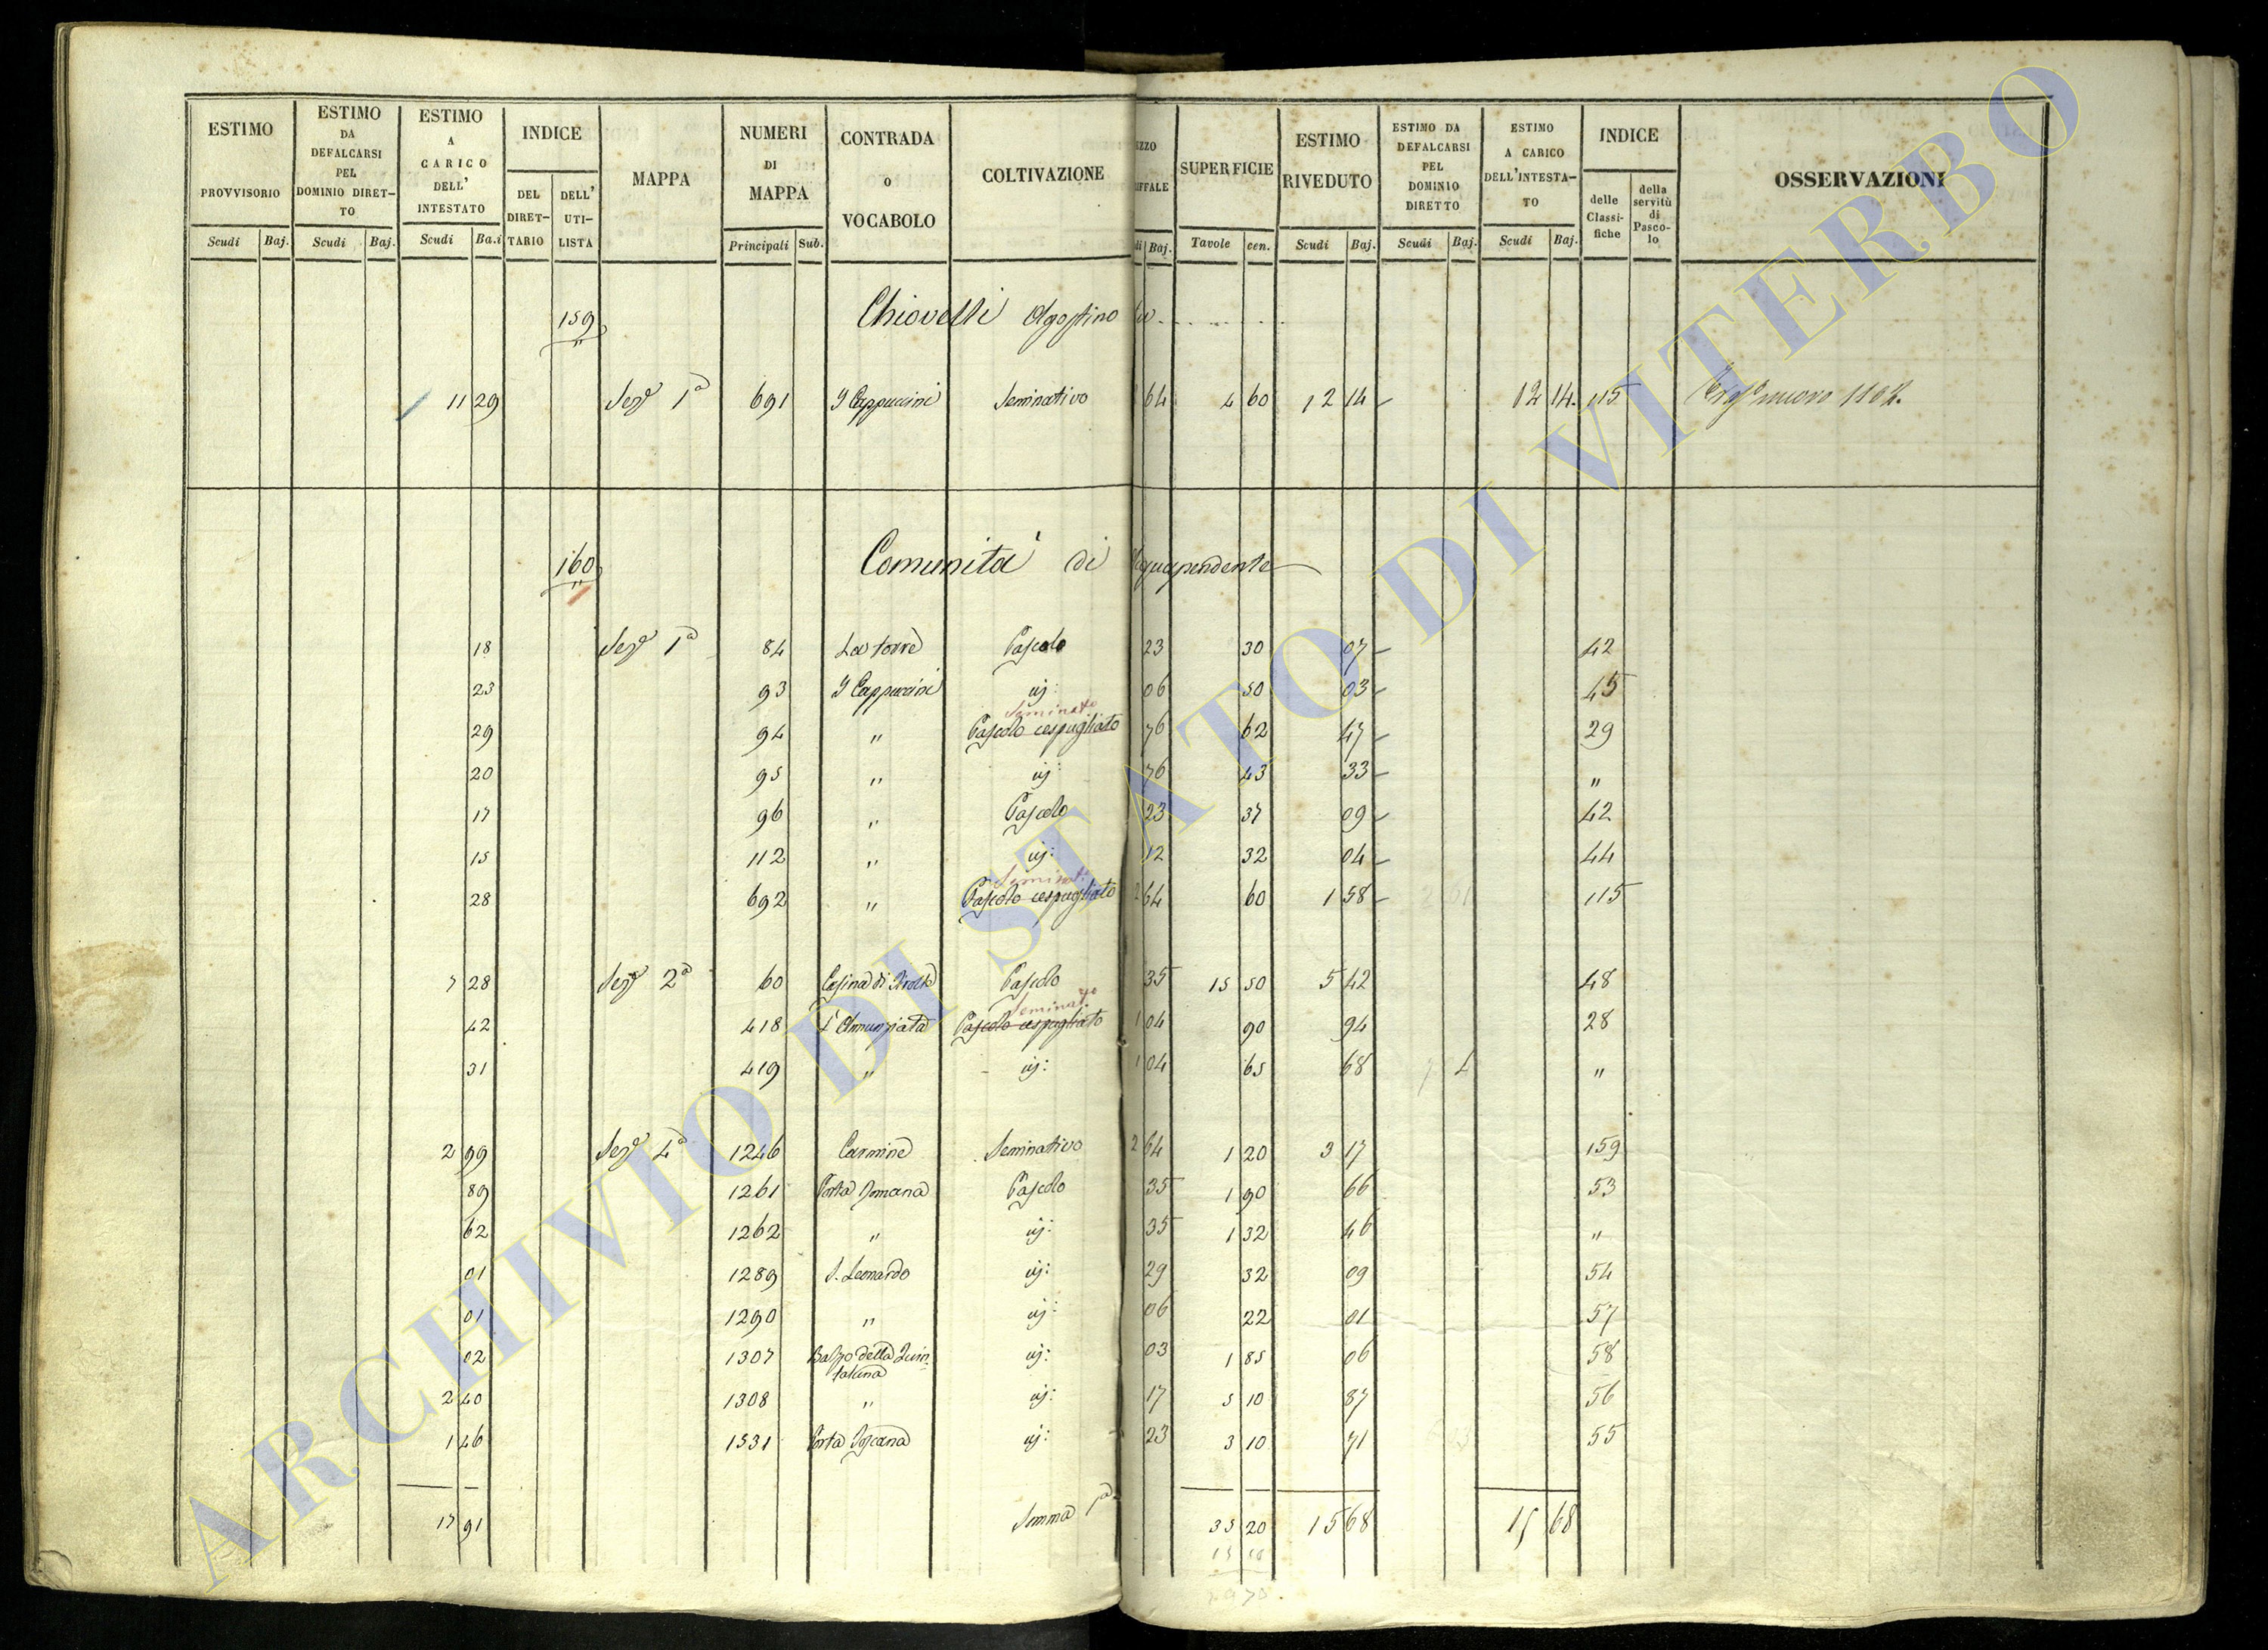 ESTIMO PROVVISORIO | ESTIMO DA DEFALCARSI PEL DOMINIO DIRETTO | ESTIMO A CARICO DELL' INTESTATO | INDICE | MAPPA | NUMERI DI MAPPA | CONTRADA O VOCABOLO | COLTIVAZIONE | SUPERFICIE | ESTIMO RIVEDUTO | ESTIMO DA DEFALCARSI PEL DOMINIO DIRETTO | ESTIMO A CARICO DELL'INTESTATO | INDICE | OSSERVAZIONI
DEL DIRETTARIO | DELL' UTILISTA | delle Classifiche | della servitù di Pascolo
Scudi | Baj. | Scudi | Baj. | Scudi | Ba.i | Principali | Sub. | Baj. | Tavole | cen. | Scudi | Baj. | Scudi | Baj. | Scudi | Baj.
159 Chiovelli Agostino
11 29 Seze 1a 691 I Cappuccini Seminativo 64 4 60 12 14 12 14 115
160 Comunità di Acquapendente
18 Seze 1a 84 La torre Pascolo 23 30 07 42
23 93 I Cappuccini id: 06 50 03 45
Seminato
29 94 " Pascolo cespugliato 76 62 47 29
20 95 " id: 76 43 33 "
17 96 " Pascolo 23 37 09 42
15 112 " id: 12 32 04 44
Seminato
28 692 " Pascolo cespugliato 2 64 60 1 58 115
7 28 Seze 2a 60 Pascolo 35 15 50 5 42 48
Seminato
42 418 L'Annunziata Pascolo cespugliato 1 04 90 94 28
31 419 " id: 1 04 65 68 "
2 99 Seze 4a 1246 Carmine Seminativo 2 64 1 20 3 17 159
89 1261 Porta Romana Pascolo 35 1 90 66 53
62 1262 " id: 35 1 32 46 "
01 1289 S. Leonardo id: 29 32 09 54
01 1290 " id: 06 22 01 57
02 1307 id: 03 1 85 06 58
2 40 1308 " id: 17 5 10 87 56
1 46 1331 Porta Toscana id: 23 3 10 71 55
17 91 Somma 1a 35 20 15 68 15 68
ARCHIVIO DI STATO DI VITERBO